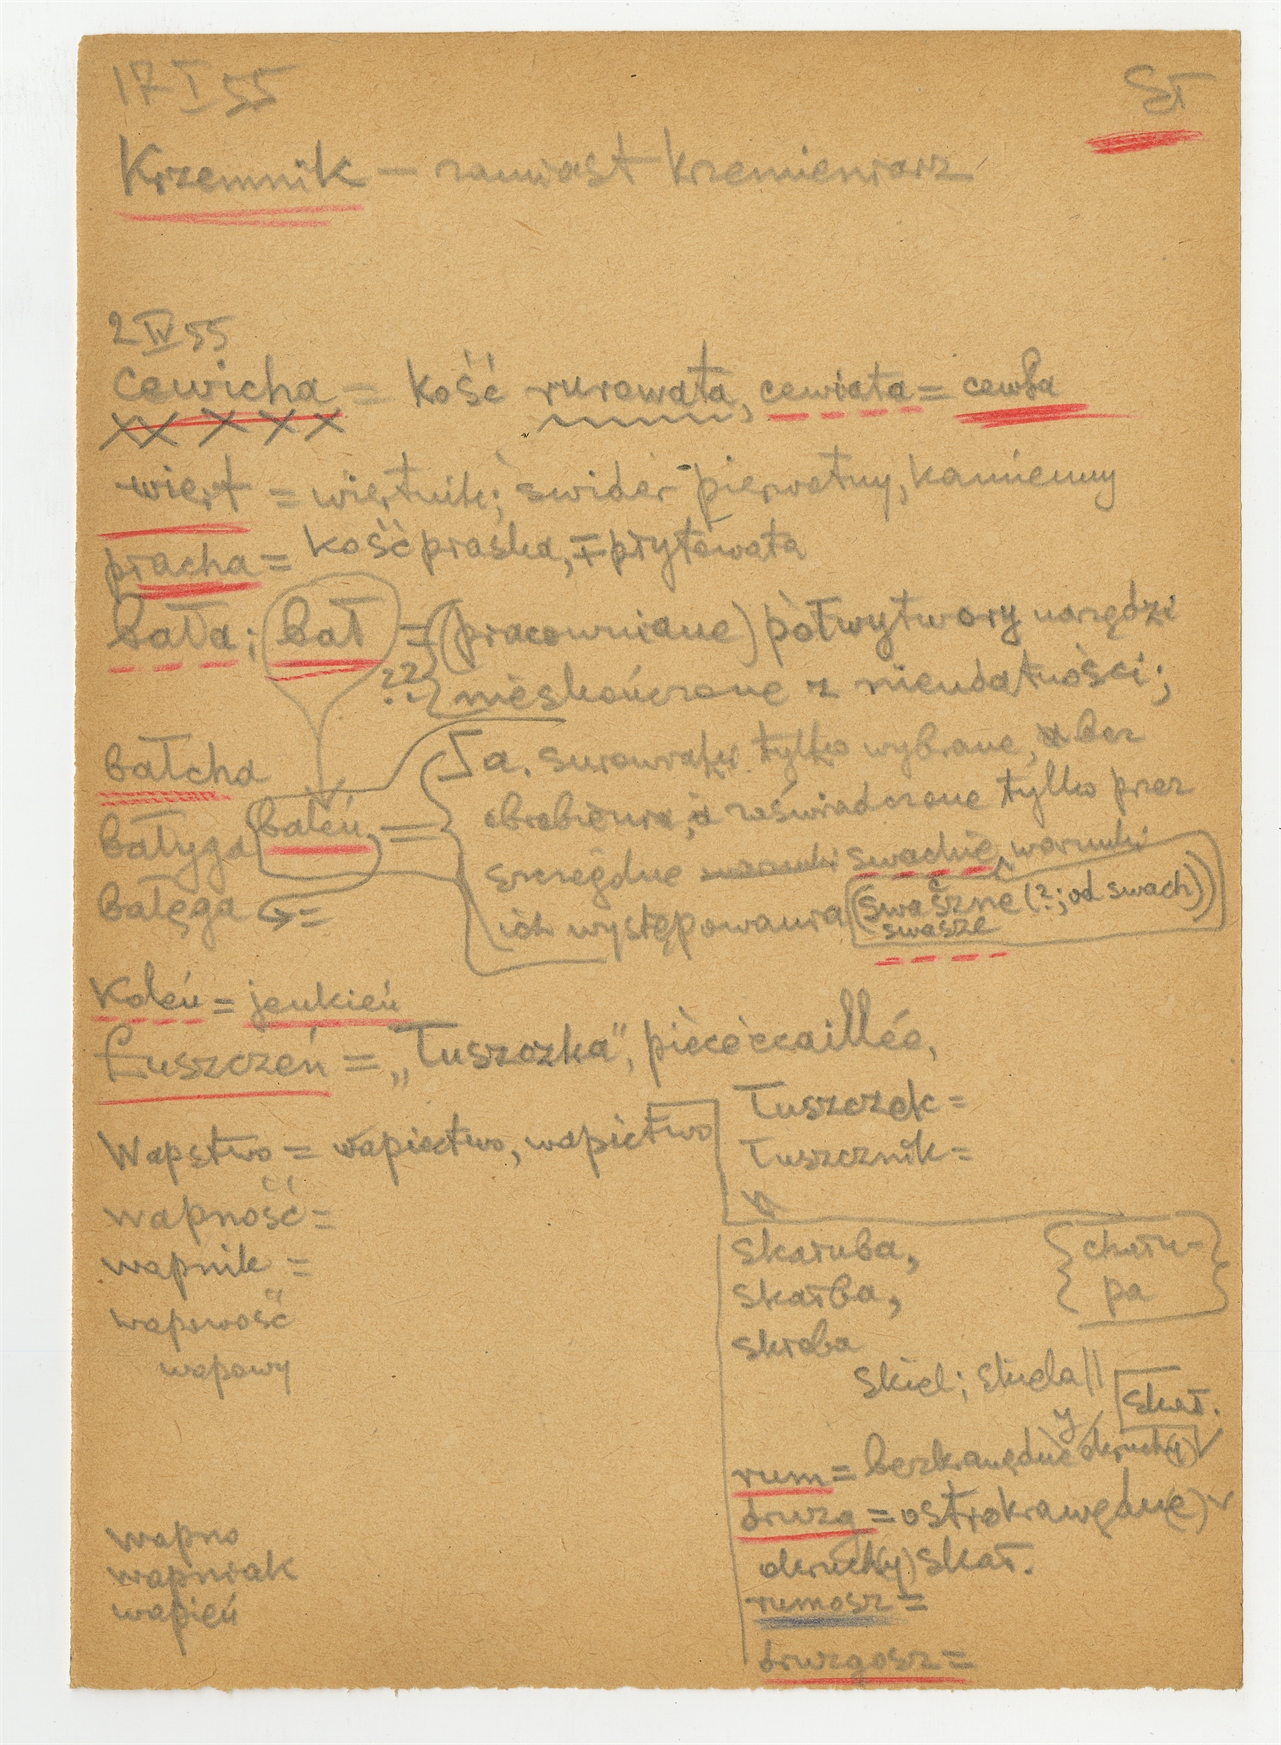 17 I 55
St
Krzemnik — zamiast krzemieniarz
2 IV 55
cewicha = kość rurowata, cewiata = cewka
wiert = wiertnik; świder pierwotny, kamienny
pracha = kość płaska, płytowata
bała; bał = (pracowniane) półwytwory narzędzi
?? nieskończone z nieudatności;
bałcha
a. surowiaki tylko wybrane, bez
bałyga bałeń =
obrobienia, a zaświadczone tylko przez
szczególne warunki swackie warunki
bałęga =
ich występowania (swaszne (?; od swach))
swasze
Koleń = jeukień
Łuszczeń = „Łuszczka”, pièce écaillée,
Łuszczek =
Wapstwo = wapiectwo, wapictwo
Łusznik =
wapność =
wapnik =
wapowość
wapowy
skałuba,
skałba,
skroba
{chału-
pa}
skiel; skiela ||
skał.
rum = bezkrawędne okruch(y)
druzg = ostrokrawędn(e)
okruch(y) skał.
rumosz =
druzgosz =
wapno
wapniak
wapień